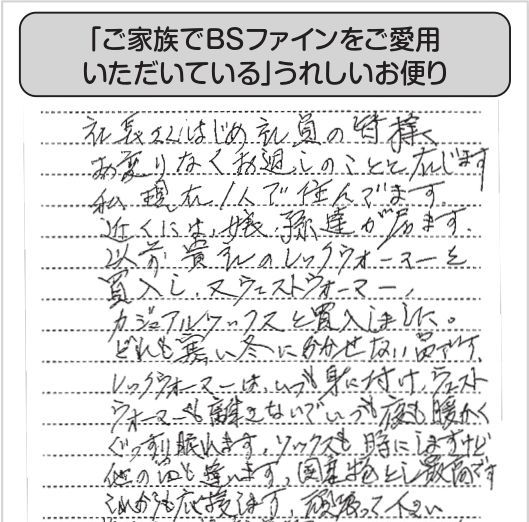 「ご家族でBSファインをご愛用
いただいている」うれしいお便り
社長さんはじめ社員の皆様へ
お変りなくお過しのことと存じます
私現在1人で住んでます。
近くには、娘、孫達が居ます。
以前貴社のレッグウォーマーを
買入し、又ウェストウォーマー、
カジュアルソックスと買入しました。
どれも寒い冬に欠かせない品です。
レッグウォーマーは、いつも身に付け、ウェスト
ウォーマーも離さないでいつも夜も暖かく
ぐっすり眠れます。ソックスも時にしますけど
他の品と違います。国産物とし最高です
これからも応援します、頑張って下さい